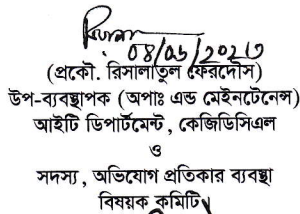 08/06/2023
(প্রকৌ. রিসালাতুল ফেরদৌস)
উপ-ব্যবস্থাপক (অপাঃ এন্ড মেইনটেনেন্স)
আইটি ডিপার্টমেন্ট, কেজিডিসিএল
ও
সদস্য, অভিযোগ প্রতিকার ব্যবস্থা
বিষয়ক কমিটি